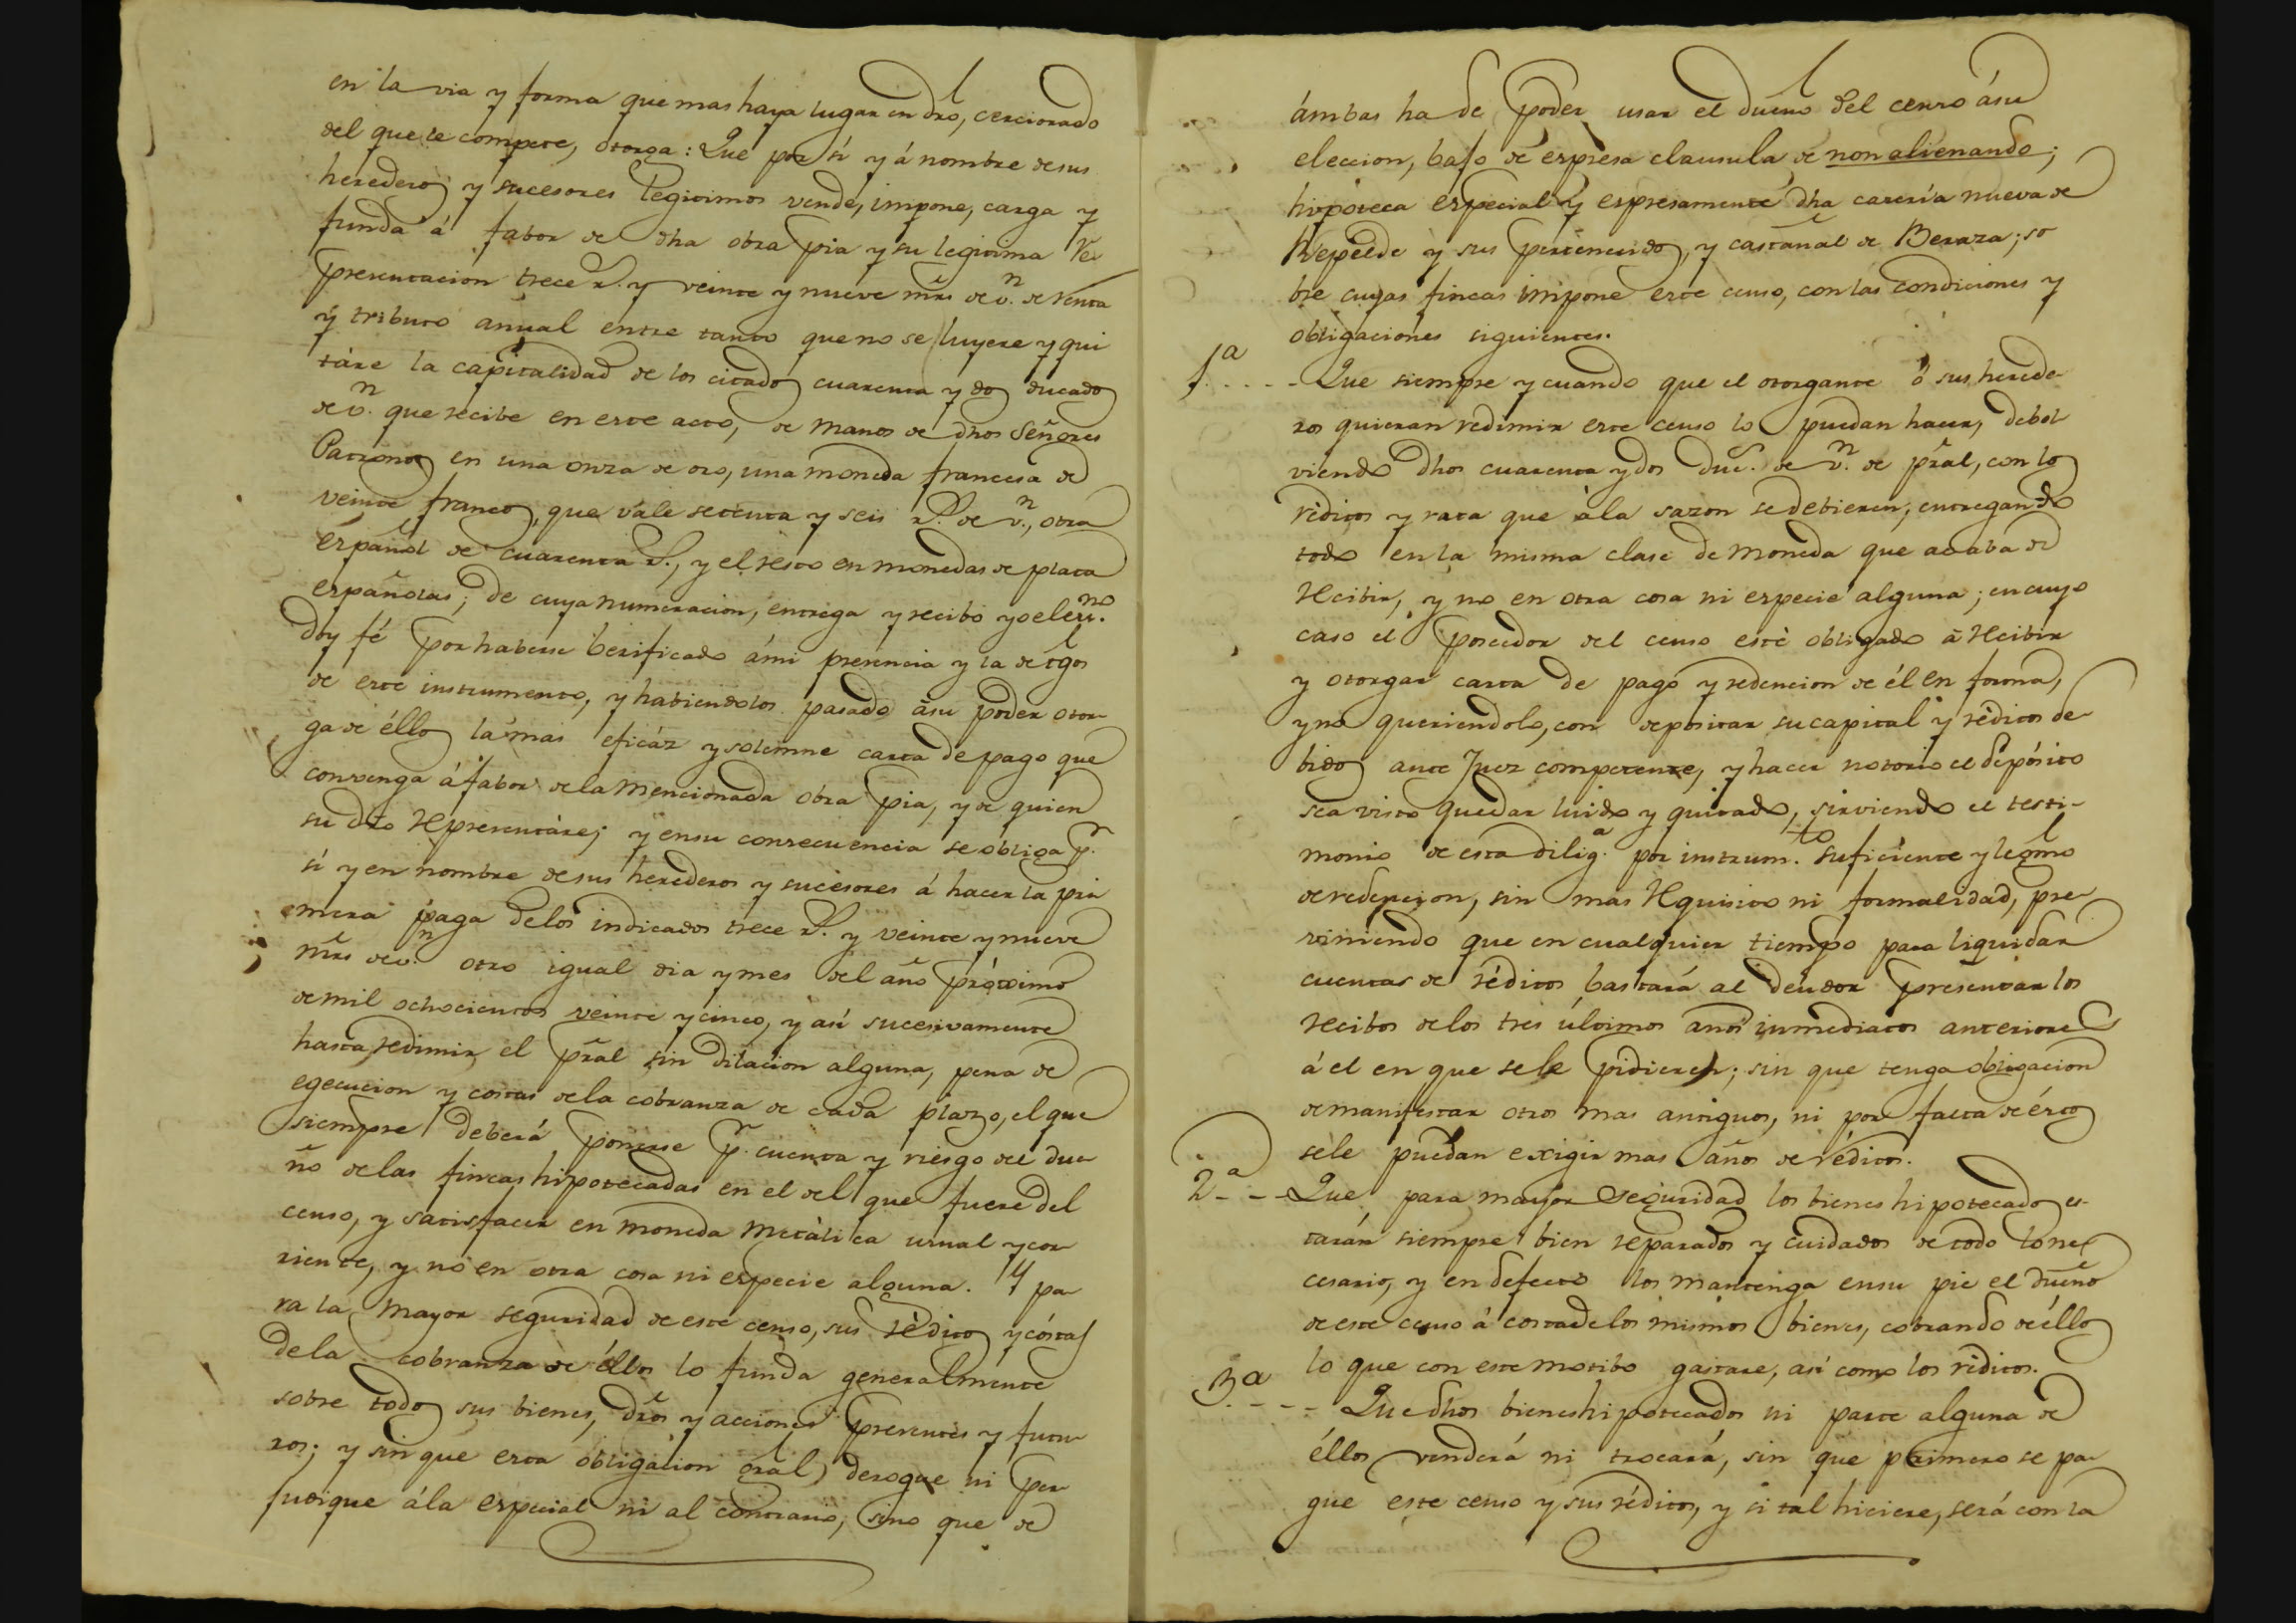 en la via y forma que mas haya lugar en dro, cerciorado
del que le compete, otorga: Que por sí y á nombre de sus
herederos y sucesores legitimos vende, impone, carga y
funda á fabor de dha obra pia y su legitima re-
presentacion trece r.s y veinte y nueve mrs de v.n de renta
y tributo anual entre tanto que no se luyere y qui
táre la capitalidad de los citados cuarenta y dos ducados
de v.n que recibe en este acto, de manos de dhos Señores
Patronos en una onza de oro, una moneda francesa de
veinte francos, que vale setenta y seis r.s de v.n, otra
español de cuarenta r.s, y el resto en monedas de plata
españolas; de cuya numeracion, entrega y recibo yo el eu.no
doy fé por haberse berificado á mi presencia y la de tgos
de este instrumento, y habiendolos pasado á su poder otor-
ga de éllos la mas eficáz y solemne carta de pago que
convenga á fabor de la mencionada obra pia, y de quien
su dro representáre; y en su consecuencia se obliga p.r
sí y en nombre de sus herederos y sucesores á hacer la pri
mera paga de los indicados trece r.s y veinte y nueve
mrs de v.n otro igual dia y mes del año próximo
de mil ochocientos veinte y cinco, y asi sucesivamente
hasta redimir el pral sin dilacion alguna, pena de
egecucion y costas de la cobranza de cada plazo, el que
siempre deberá ponerse p.r cuenta y riesgo del due-
ño de las fincas hipotecadas en el del que fuere del
censo, y satisfacer en moneda metálica usual y cor
riente, y no en otra cosa ni especie alguna. Y pa-
ra la mayor seguridad de este censo, sus réditos y cóstas
de la cobranza de éllos lo funda generalmente
sobre todos sus bienes, dros y acciones presentes y futu-
ros; y sin que esta obligacion gral derogue ni per
judique á la especial ni al contrario, sino que de
ámbas ha de poder usar el dueño del censo á su
eleccion, bajo de espresa clausula de non alienando;
hipoteca especial y espresamente dha caseria nueva de
Repelde y sus pertenecidos, y castañal de Beraza; so
bre cuyas fincas impone este censo, con las condiciones y
obligaciones siguientes.
1.a - - - - Que siempre y cuando que el otorgante ó sus herede-
ros quieran redimir este censo lo puedan hacer, debol
viendo dhos cuarenta y dos duc.s de v.n de pral, con los
réditos y rata que á la sazon se debieren, entregando
todo en la misma clase de moneda que acaba de
recibir, y no en otra cosa ni especie alguna; en cuyo
caso el poseedor del censo esté obligado á recibir
y otorgar carta de pago y redencion de él en forma,
y no queriendolo, con depositar su capital y réditos de-
bidos ante Juez competente, y hacer notorio el depósito
sea visto quedar luido y quitado, sirviendo el testi-
monio de esta dilig.a por instrum.to suficiente y legmo
de redencion, sin mas requisito ni formalidad, pre-
viniendo que en cualquier tiempo para liquidar
cuentas de réditos bastará al deudor presentar los
recibos de los tres últimos años inmediatos anteriores
á el en que se le pidieren; sin que tenga obligacion
de manifestar otros mas antiguos, ni por falta de éstos
se le puedan exigir mas años de réditos.
2.a - - - Que para mayor seguridad los bienes hipotecados es-
tarán siempre bien reparados y cuidados de todo lo ne-
cesario, y en defecto los mantenga en su pie el dueño
de este censo á costa de los mismos bienes, cobrando de éllos
lo que con este motibo gastare, así como los réditos.
3.a - - - - Que dhos bienes hipotecados ni parte alguna de
éllos venderá ni trocará, sin que primero se pa-
gue este censo y sus réditos, y si tal hiciere, será con la